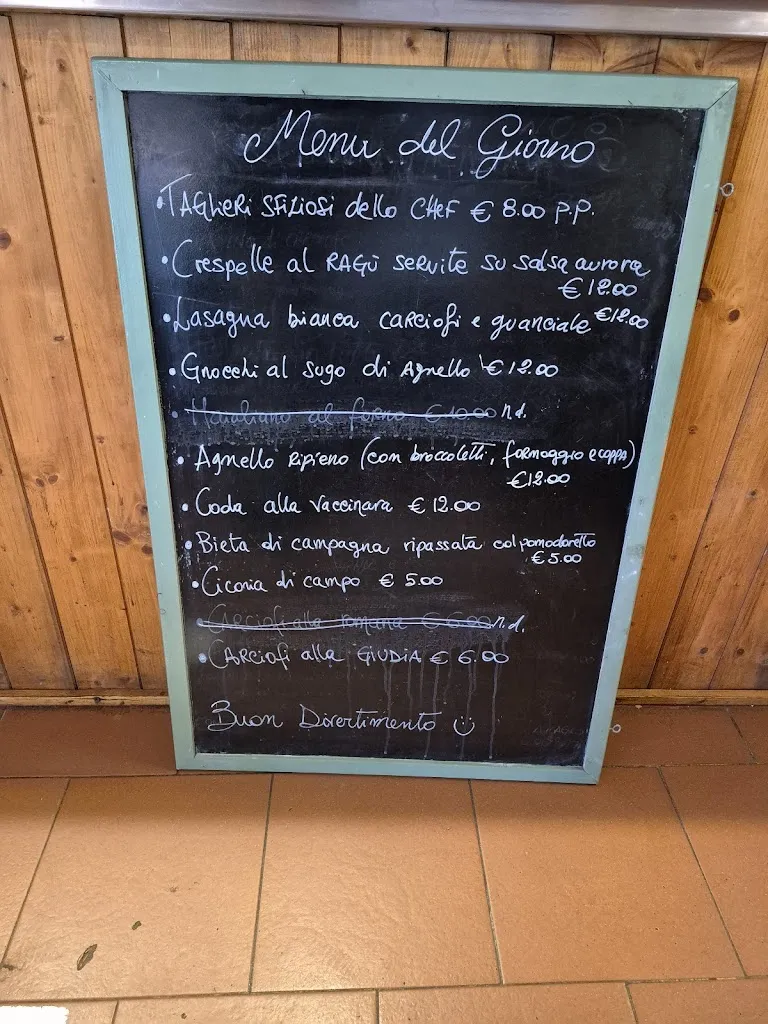 Menu del Giorno
• TAGLIERI SFIZIOSI dello CHEF € 8.00 P.P.
• Crespelle al RAGÙ SERVITE SU SALSA AURORA
€ 12.00
• Lasagna bianca CARCIOFI e GUANCIALE € 12.00
• Gnocchi al sugo di AGNELLO € 12.00
• al forno € 10.00 n.d.
• AGNELLO RIPIENO (con broccoletti, formaggio e COPPA)
€ 12.00
• Coda alla vaccinara € 12.00
• Bieta di campagna ripassata col pomodoretto
€ 5.00
• Ciconia di campo € 5.00
• CARCIOFI alla romana € 6.00 n.d.
• CARCIOFI alla GIUDIA € 6.00
Buon Divertimento